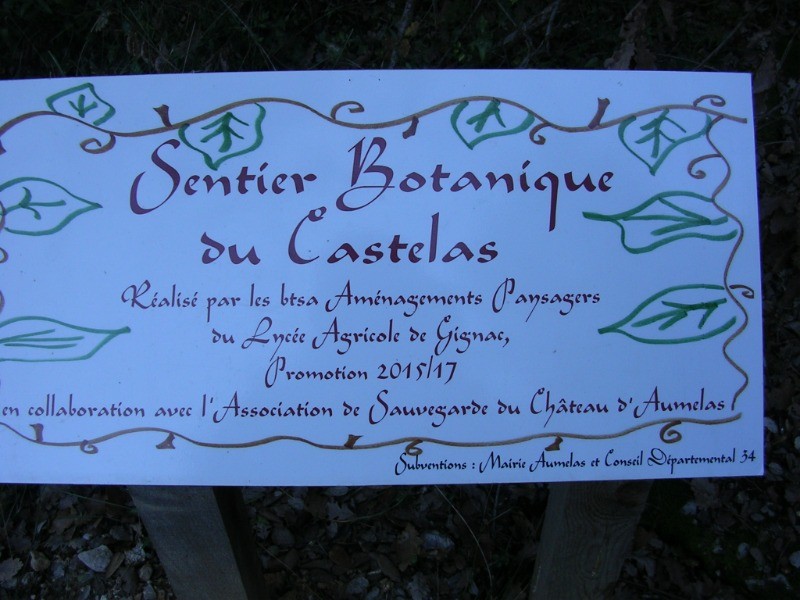 Sentier Botanique
du Castelas
Réalisé par les btsa Aménagements Paysagers
du Lycée Agricole de Gignac,
Promotion 2015/17
en collaboration avec l'Association de Sauvegarde du Château d'Aumelas
Subventions : Mairie Aumelas et Conseil Départemental 34